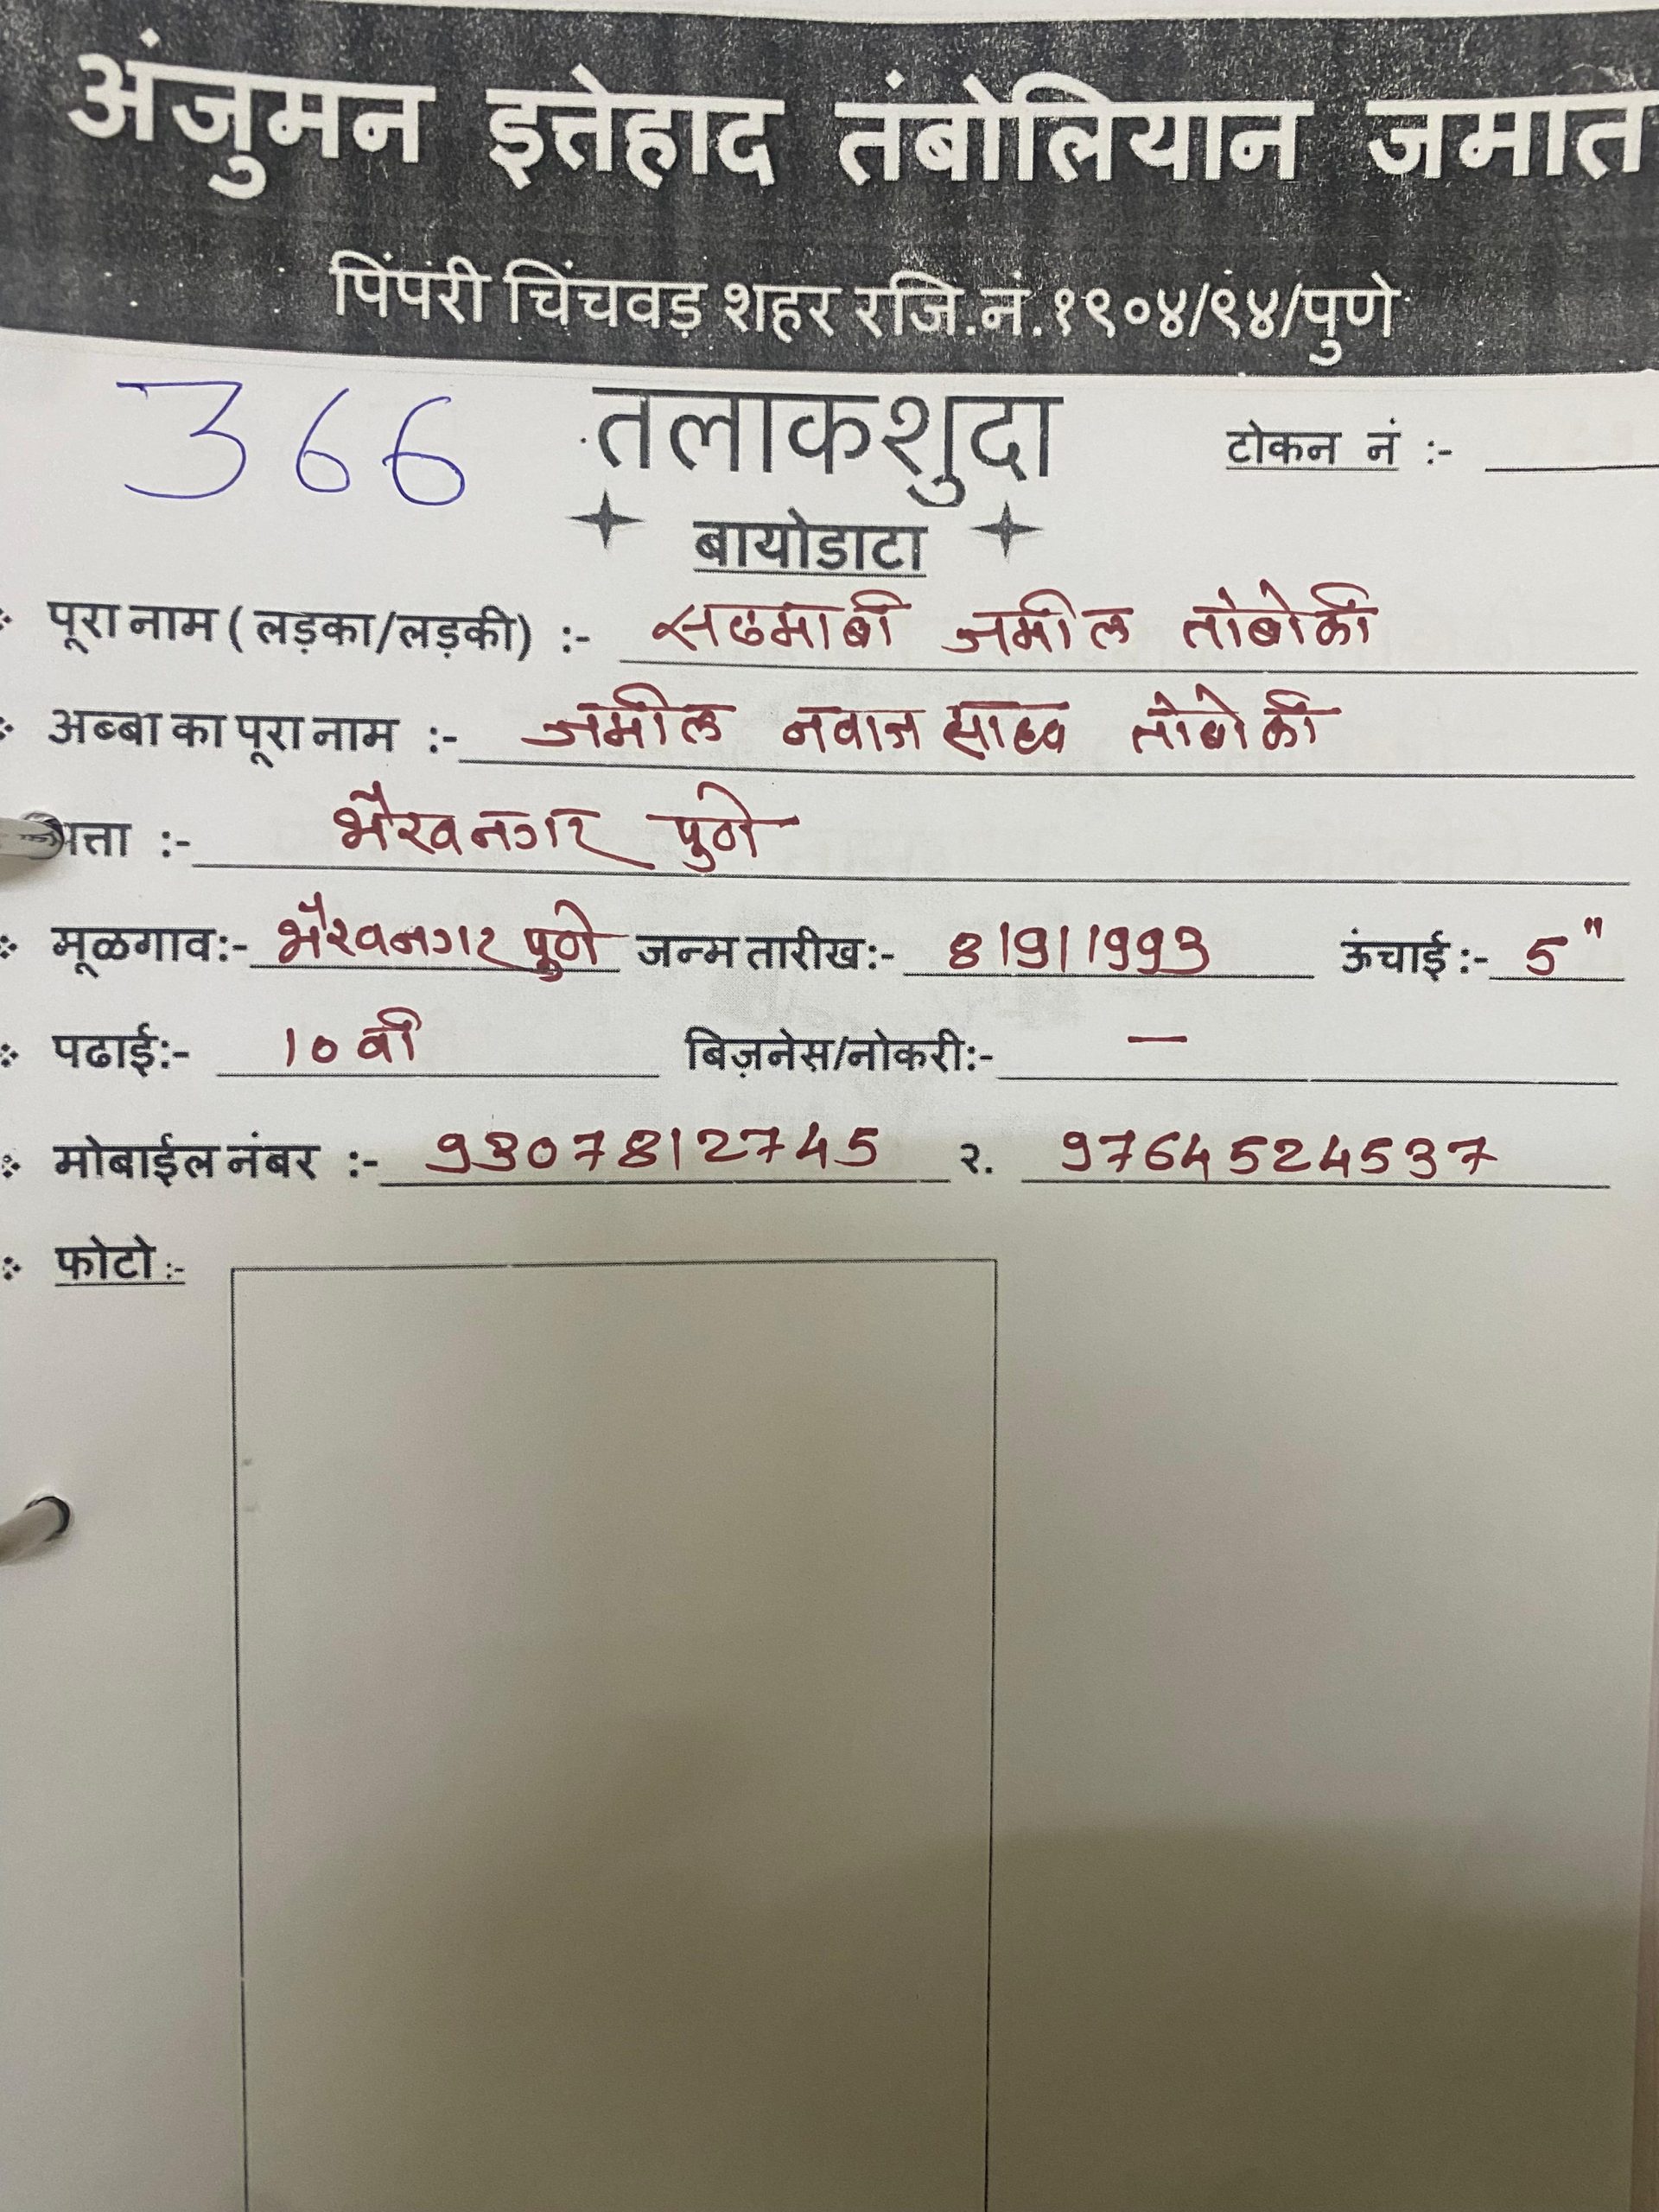 अंजुमन इत्तेहाद तंबोलियान जमात
पिंपरी चिंचवड़ शहर रजि.नं.१९०४/९४/पुणे
366 तलाकशुदा टोकन नं :-
बायोडाटा
पूरा नाम ( लड़का/लड़की) :- जमील तांबोळी
अब्बा का पूरा नाम :- जमील नवाज साहब तांबोळी
पत्ता :- भैरवनगर पुणे
मूळगाव:- भैरवनगर पुणे जन्म तारीख:- 8/9/1993 ऊंचाई :- 5"
पढाई:- 10 वी बिज़नेस/नोकरी:- —
मोबाईल नंबर :- 9307812745 २. 9764524537
फोटो :-